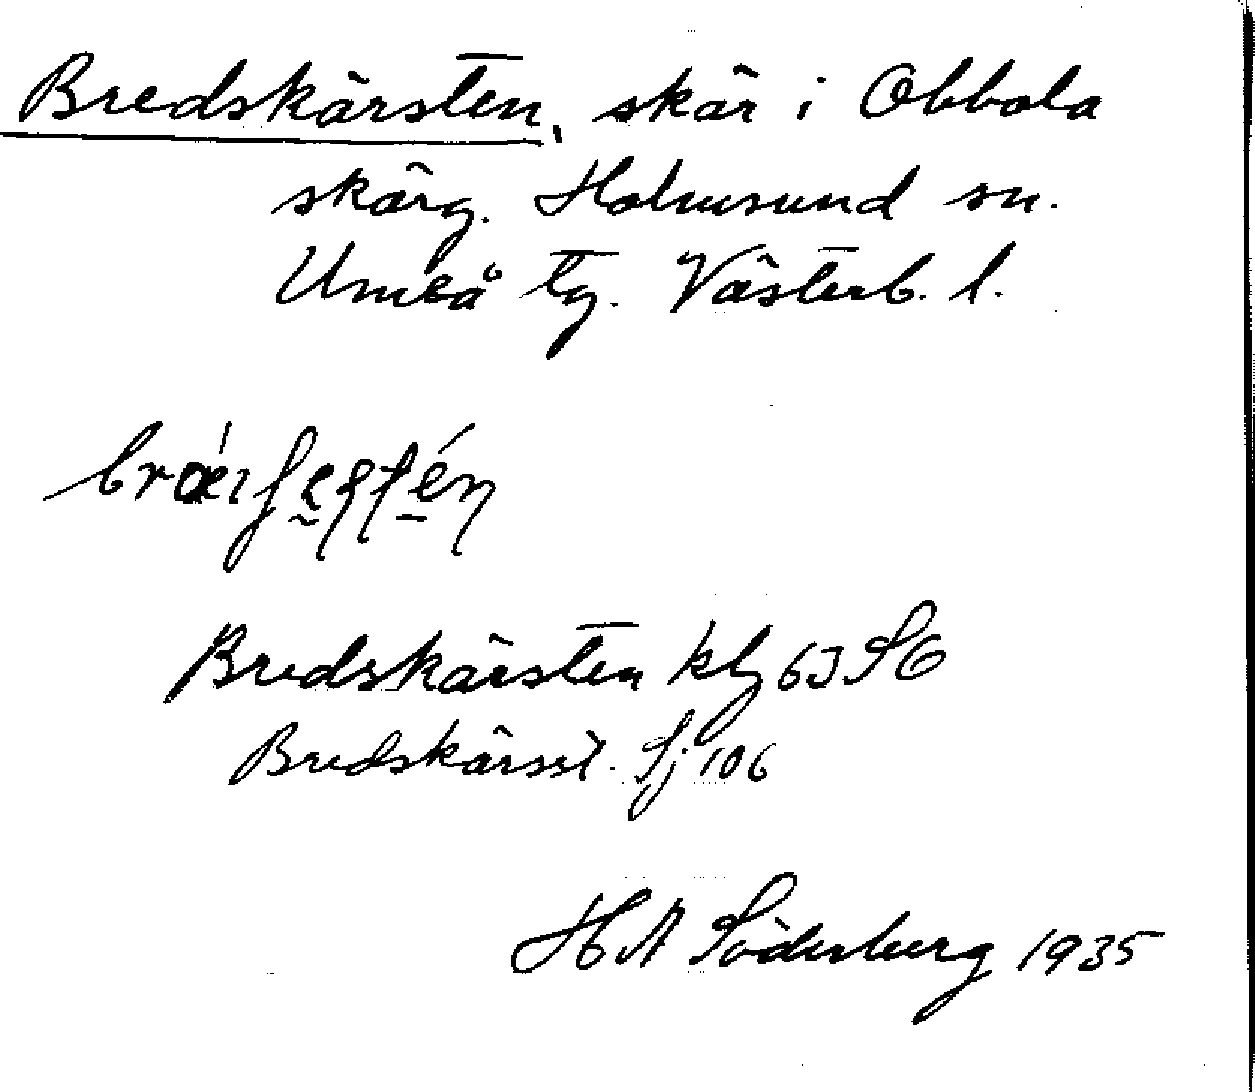 Bredskärsten, skär i Obbola
skärg. Holmsund sn.
Umeå tg. Västerb. l.
Bredskärsten kbl 63 SE
Bredskärsst. Sj 106
H A Söderberg 1935